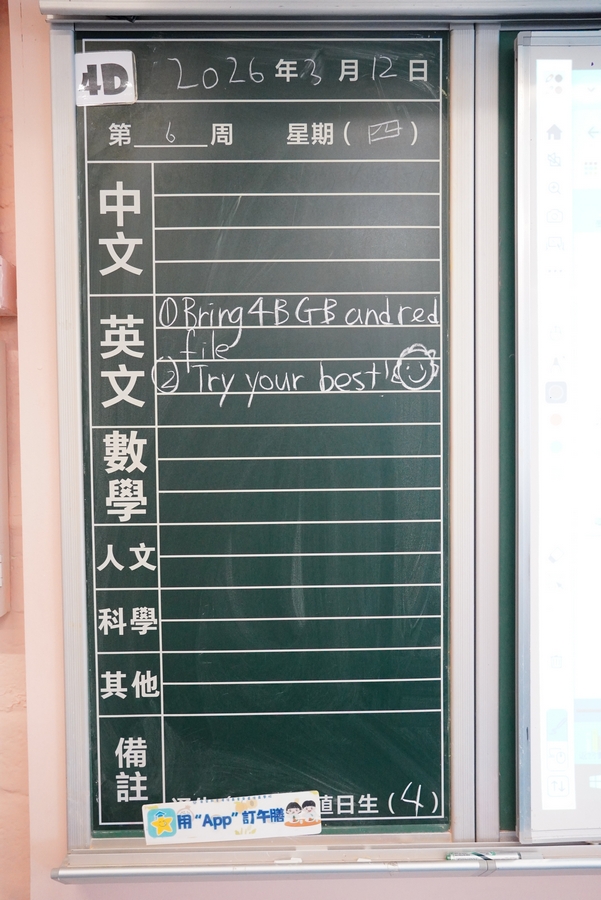 4D
2026年3月12日
第6周 星期(四)
中文
英文
① Bring 4B GB and red
file
② Try your best!
數學
人文
科學
其他
備註
值日生(4)
用“App”訂午膳